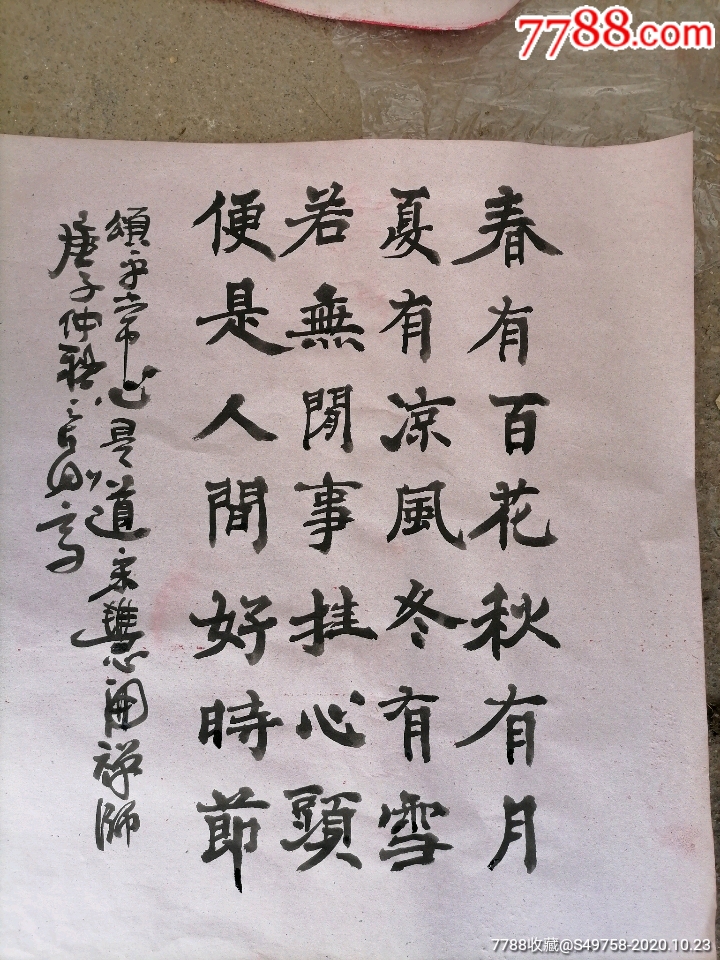 7788.com
春有百花秋有月
夏有凉風冬有雪
若無閒事挂心頭
便是人間好時節
頌平常心是道宋慧開禪師
庚子仲秋
7788收藏@S49758-2020.10.23